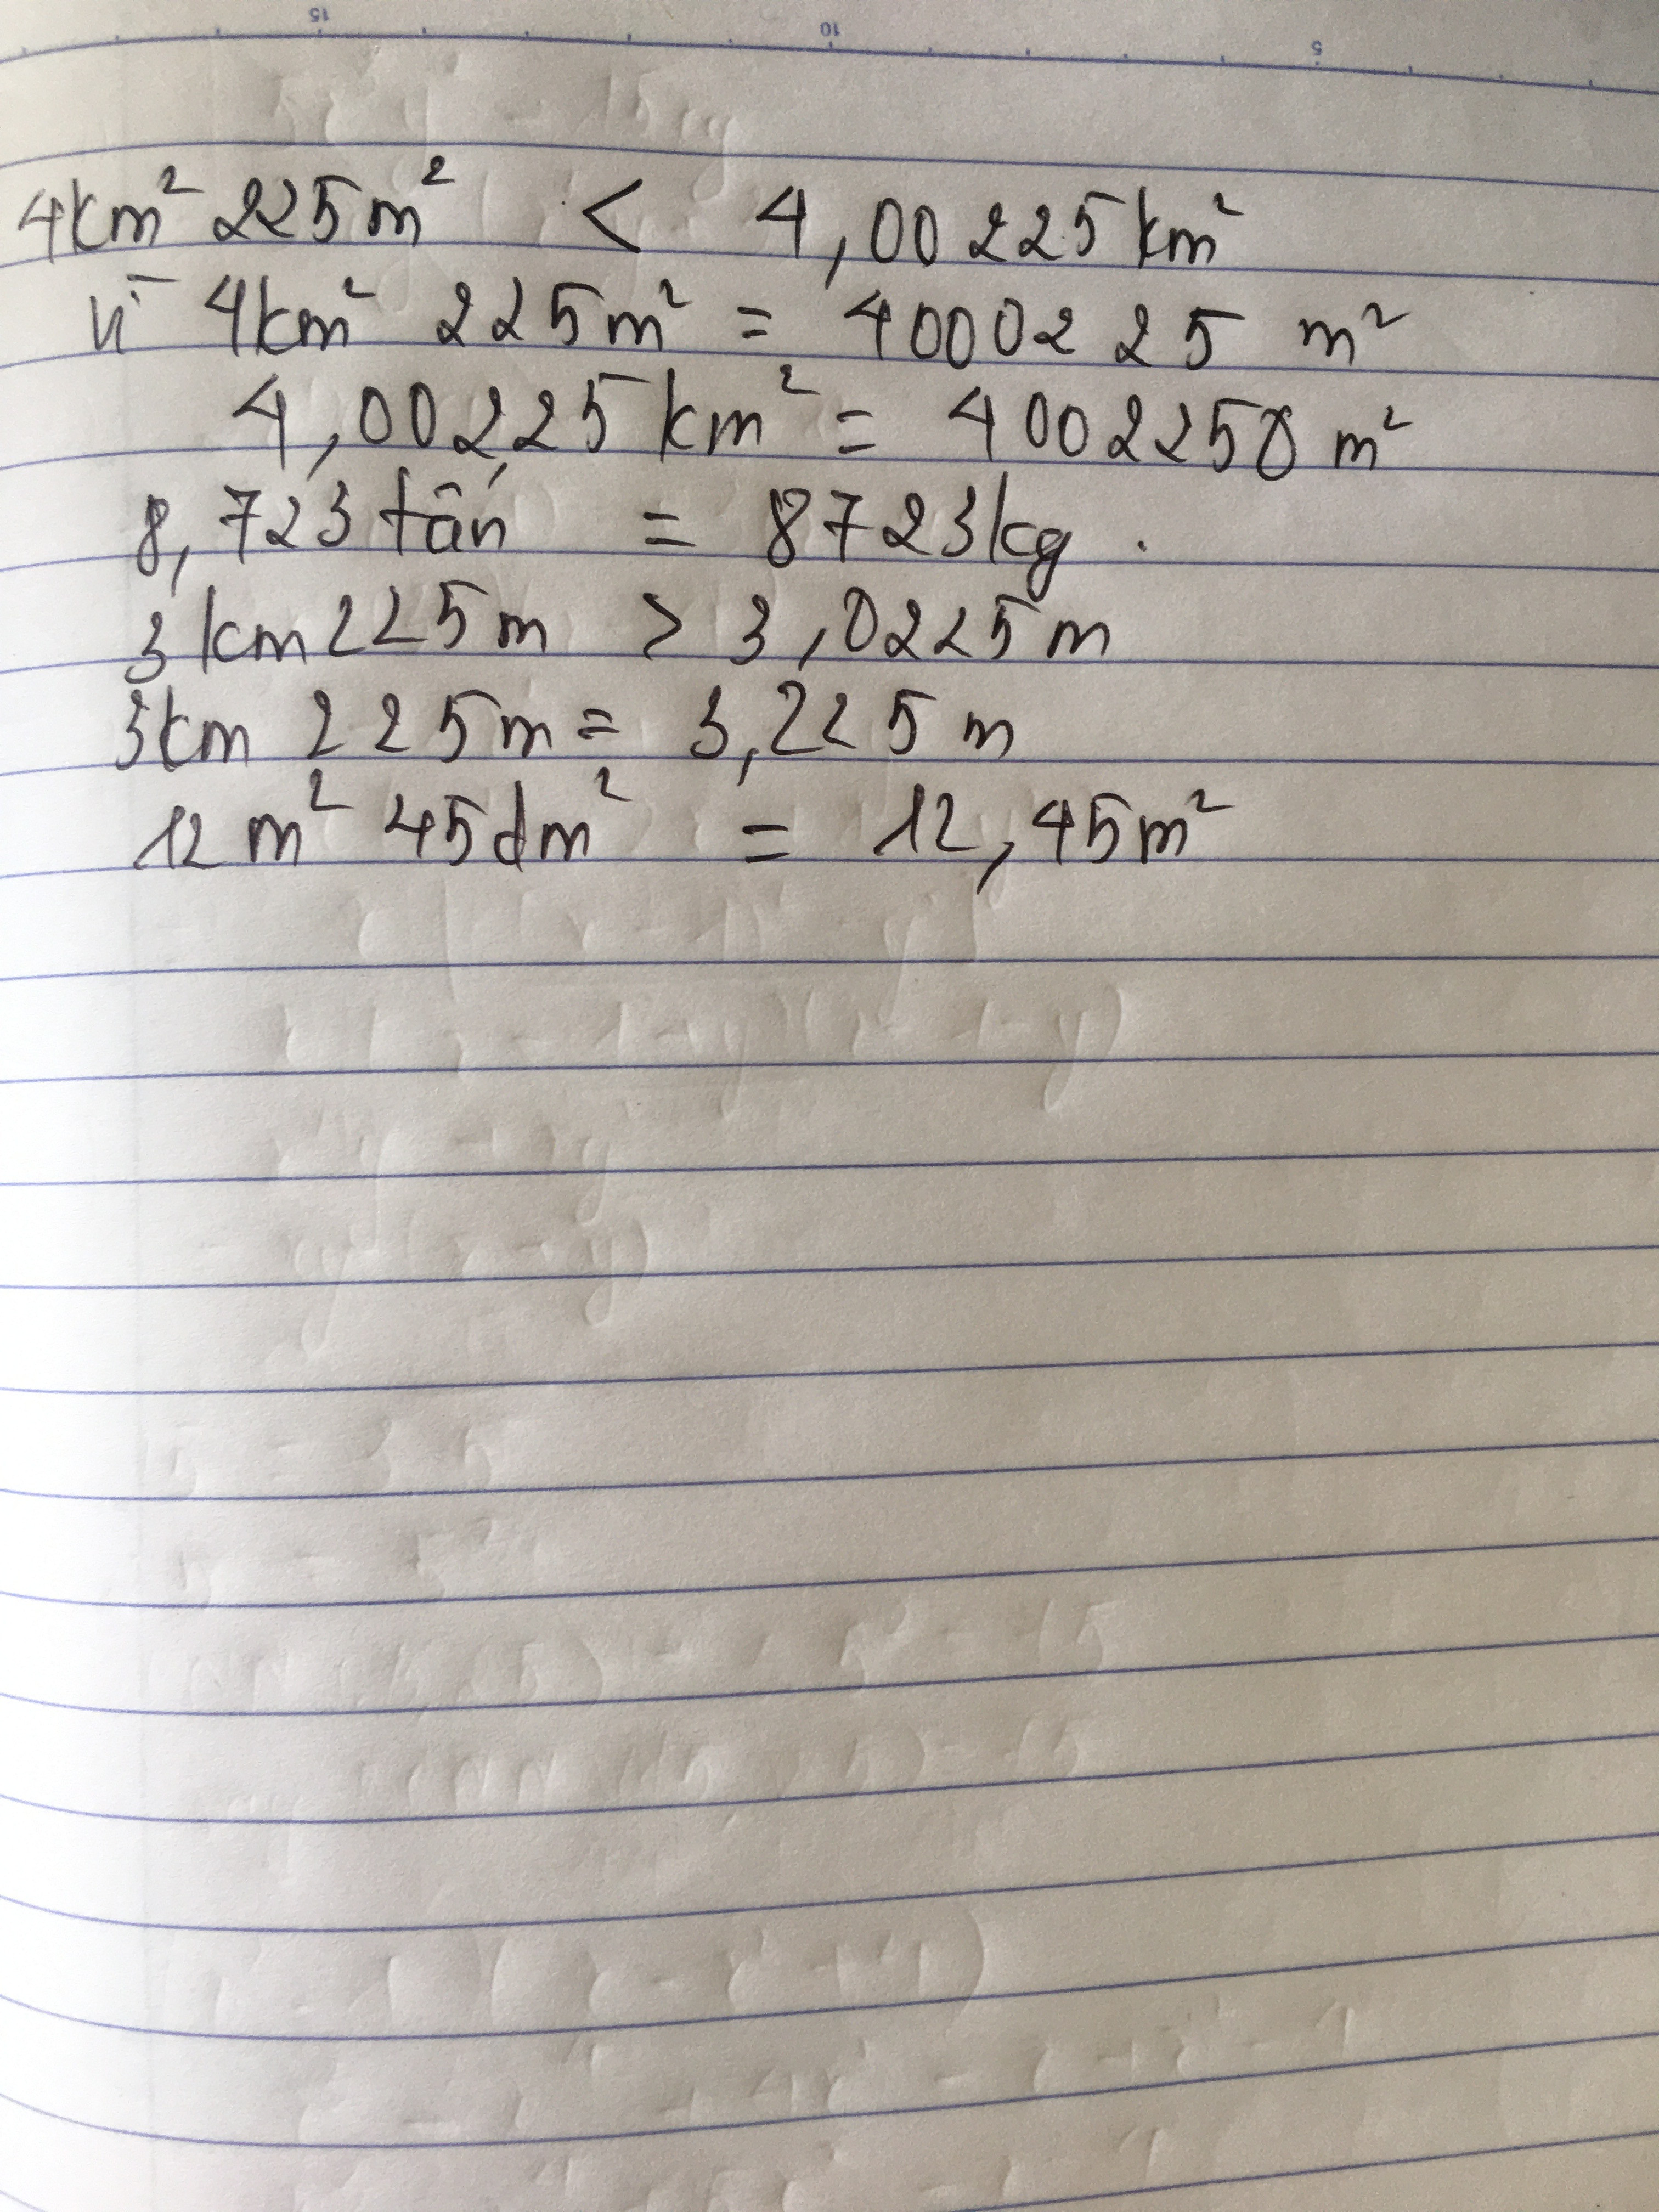 15 10 5
4km² 225m² < 4,00225km²
vì 4km² 225m² = 4000225 m²
4,00225km² = 4002250 m²
8,723 tấn = 8723kg.
3km225m > 3,0225m
3km 225m = 3,225 m
12m² 45dm² = 12,45m²